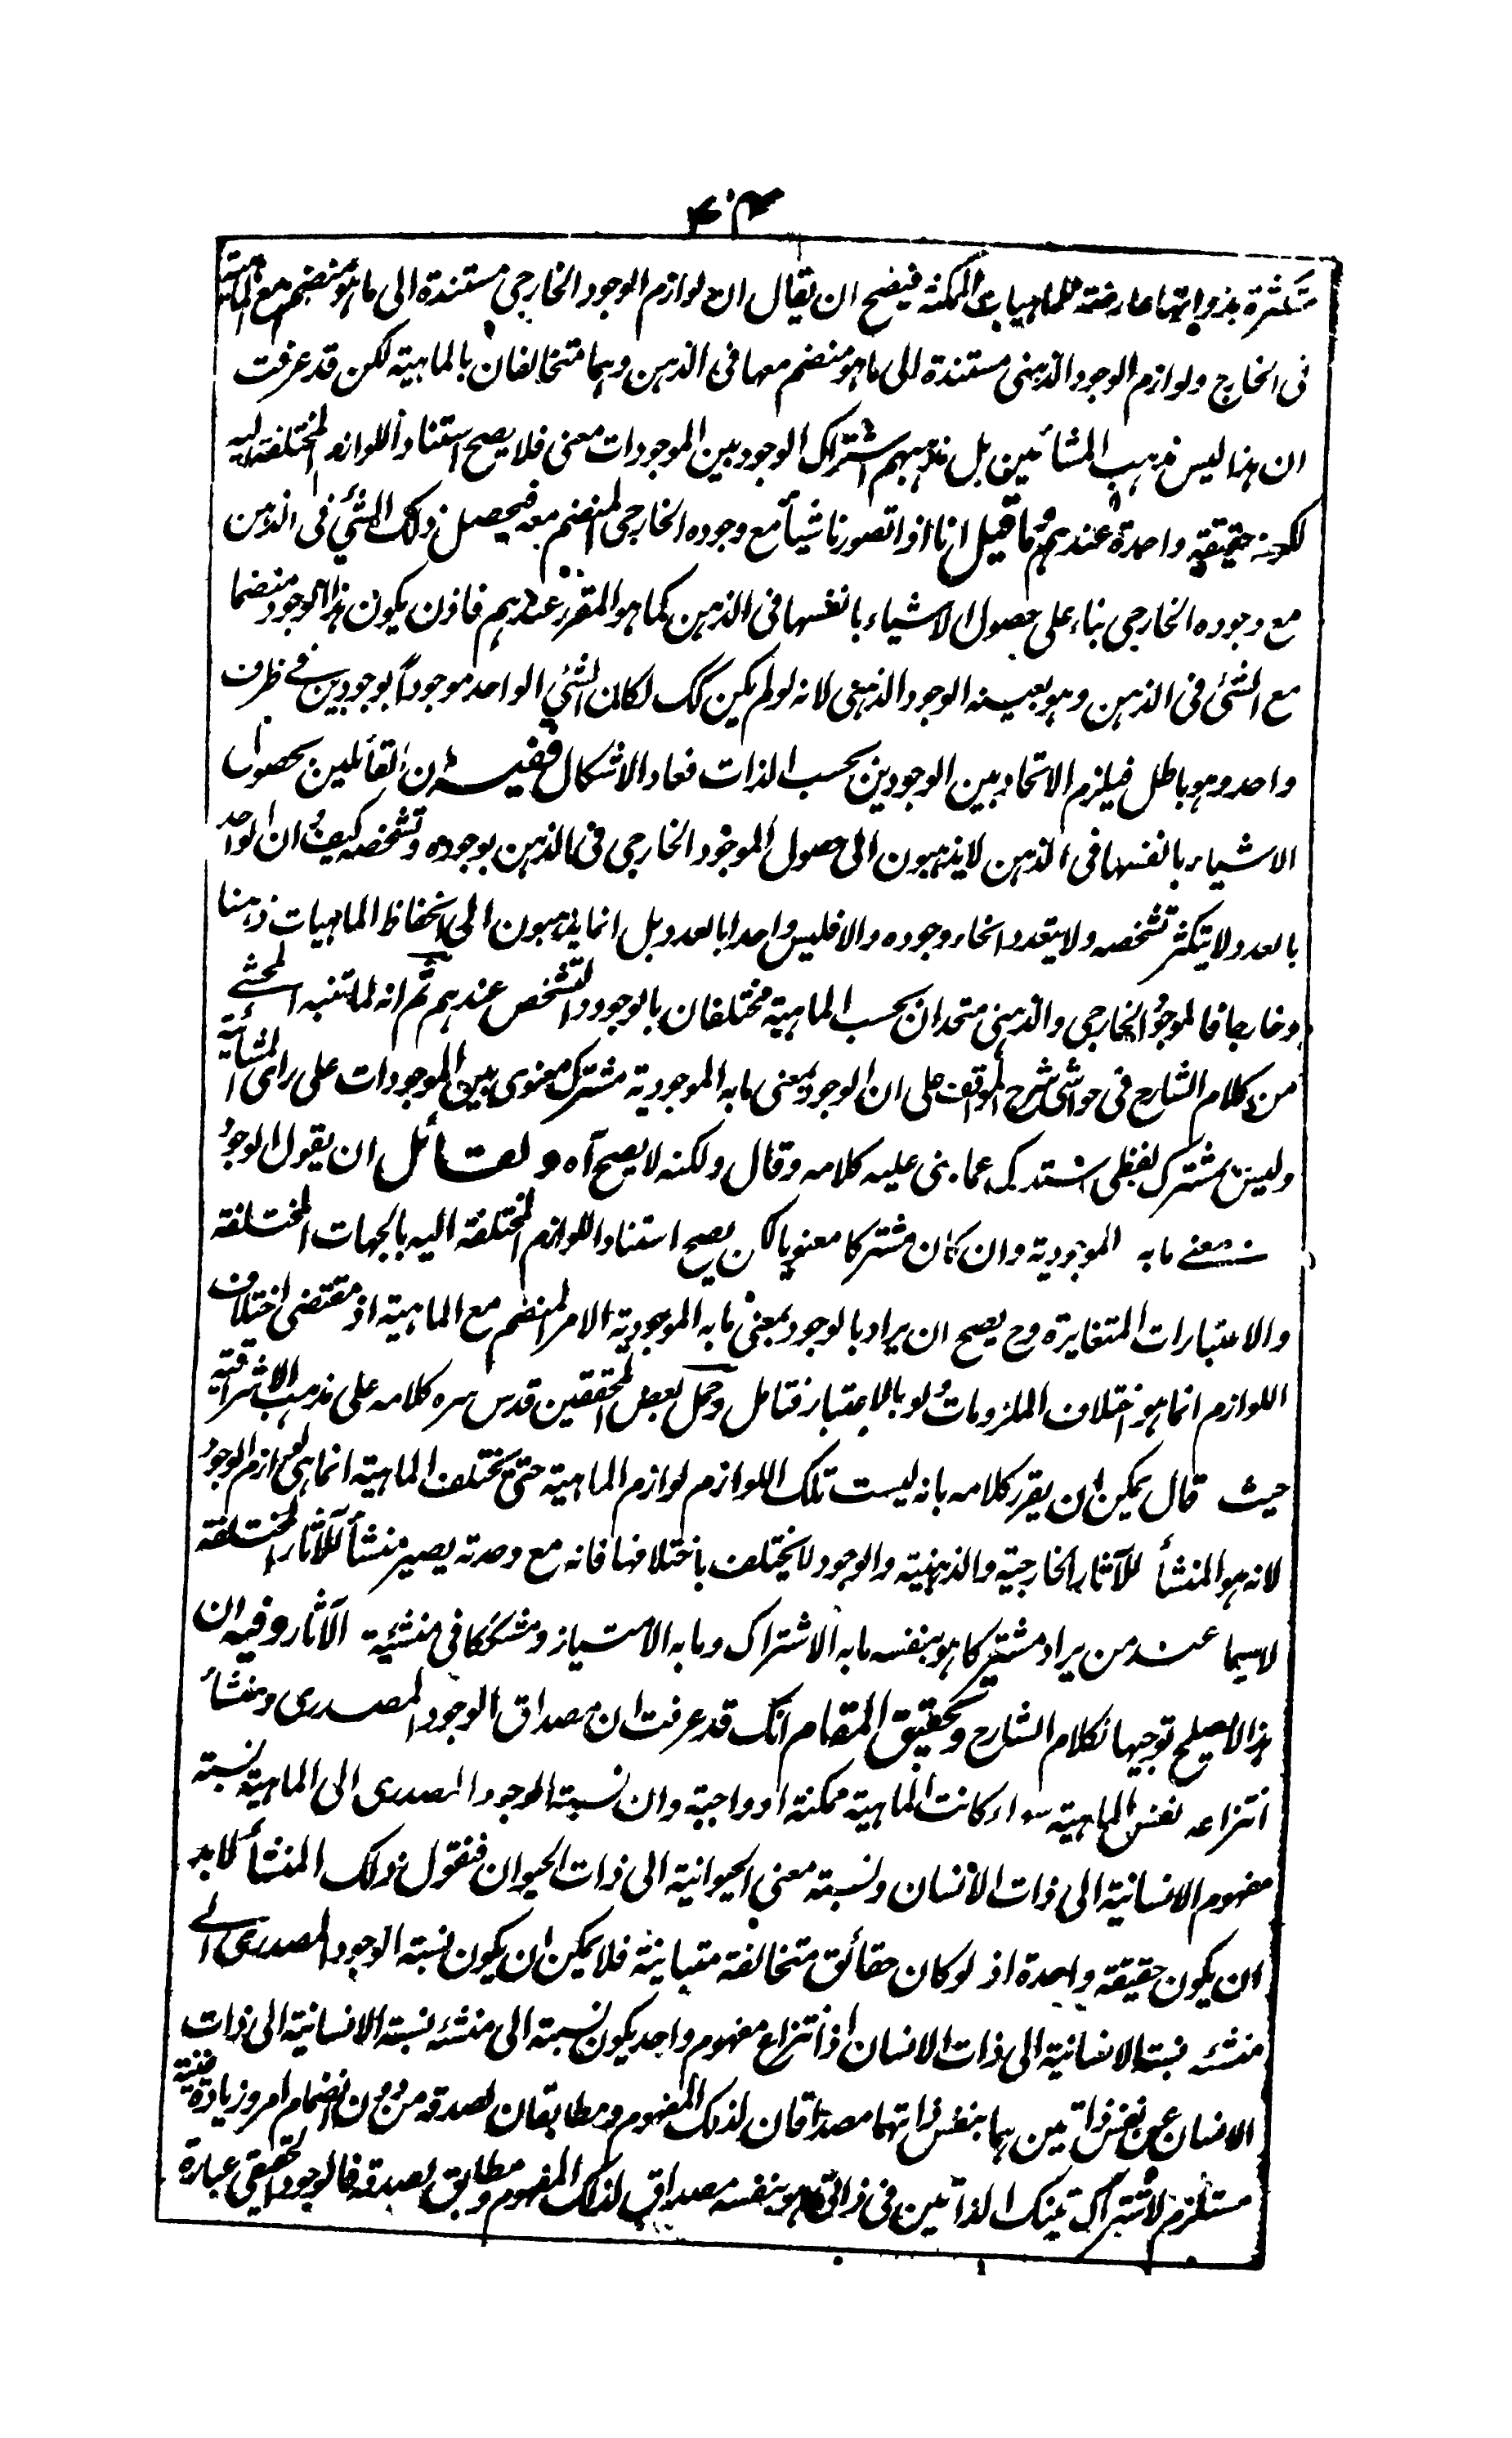 متكثرة بذواتها عارضة للماهيات الممكنة فيضح ان يقال ان لوازم الوجود الخارجي مستندة الى ما هو منضم مع الماهية
فى الخارج ولوازم الوجود الذهنى مستندة الى ما هو منضم معها فى الذهن وهما متخالفان بالماهية لكن قد عرفت
ان هذا ليس مذهب المشائين بل مذهبهم اشتراك الوجود بين الموجودات معنى فلا يصح استناد اللوازم المختلفة اليه
لكونه حقيقة واحدة عندهم وما قيل انا اذا تصورنا شيأ مع وجوده الخارجى المنضم معه فيحصل ذلك الشئ فى الذهن
مع وجوده الخارجى بناء على حصول الاشياء بانفسها فى الذهن كما هو المقرر عندهم فاذن يكون هذا الوجود منضما
مع الشئ فى الذهن وهو بعينه الوجود الذهنى لانه لو لم يكن كك لكان الشئ الواحد موجوداً بوجودين فى ظرف
واحد وهو باطل فيلزم الاتحاد بين الوجودين بحسب الذات فعاد الاشكال ففيه ان القائلين بحصول
الاشياء بانفسها فى الذهن لا يذهبون الى حصول الموجود الخارجى فى الذهن بوجوده وتشخصه كيف وان الواحد
بالعدد لا يتكثر تشخصه ولا يتعدد انحاء وجوده والا فليس واحدا بالعدد بل انما يذهبون الى انحفاظ الماهيات ذهنا
وخارجا فالموجود الخارجى والذهنى متحدان بحسب الماهية مختلفان بالوجود والتشخص عندهم ثم انه لما تنبه المحشى
من كلام الشارح فى حواشى شرح المواقف على ان الوجود بمعنى ما به الموجودية مشترك معنوى بين الموجودات على راى المشائية
وليس بمشترك لفظى استدرك عما بنى عليه كلامه وقال ولكنه لا يصح آه ولقائل ان يقول الوجود
بمعنى ما به الموجودية وان كان مشتركا معنويا لكن يصح استناد اللوازم المختلفة اليه بالجهات المختلفة
والاعتبارات المتغايرة وح يصح ان يراد بالوجود بمعنى ما به الموجودية الامر المنضم مع الماهية اذ مقتضى اختلاف
اللوازم انما هو اختلاف الملزومات ولو بالاعتبار فتامل وحمل بعض المحققين قدس سره كلامه على مذهب الاشراقية
حيث قال يمكن ان يقرر كلامه بانه ليست تلك اللوازم لوازم الماهية حتى يختلف الماهية انما هى لوازم الوجود
لانه هو المنشأ للآثار الخارجية والذهنية والوجود لا يختلف باختلافها فانه مع وحدته يصير منشأ للآثار المختلفة
لا سيما عند من يراد مشتركا هو بنفسه ما به الاشتراك وما به الامتياز ومشككا فى منشئية الآثار وفيه ان
هذا لا يصلح توجيها لكلام الشارح وتحقيق المقام انك قد عرفت ان مصداق الوجود المصدرى ومنشأ
انتزاعه نفس الماهية سواء كانت الماهية ممكنة او واجبة وان نسبة الوجود المصدرى الى الماهية نسبة
مفهوم الانسانية الى ذات الانسان ونسبته معنى الحيوانية الى ذات الحيوان فنقول ذلك المنشأ لا بد
ان يكون حقيقة واحدة اذ لو كان حقائق متخالفة متباينة فلا يمكن ان يكون نسبة الوجود المصدرى الى
منشئه نسبة الانسانية الى ذات الانسان اذ انتزاع مفهوم واحد يكون نسبته الى منشئه نسبة الانسانية الى ذات
الانسان عن نفس ذاتين هما بنفس ذاتهما مصداقان لذلك المفهوم ومطابقان لصدقه من دون انضمام امر وزيادة
مستلزم لاشتراك تينك الذاتين فى ذاتى هو بنفسه مصداق لذلك المفهوم ومطابق لصدقه فالوجود الحقيقى عبارة